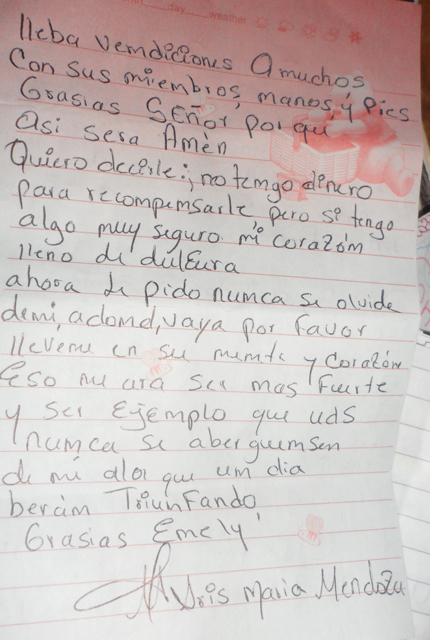 day weather
lleba vemdiciones a muchos
Con sus miembros, manos, y pies
Grasias SEñor por qu
asi sera Amèn
Quiero decirle:, no tengo dinero
para recompemsarle, pero si tengo
algo muy seguro mi corazóm
lleno de dulzura
ahora le pido nunca se olvide
demi, adomd, vaya por favor
lleveme en su mumte y Corazóm
Eso me ara Ser mas Fuerte
y ser Ejemplo que uds
numca se aberguemsen
de mi alos que um dia
beràm TriumFando
Grasias Emely
Maria Mendoza